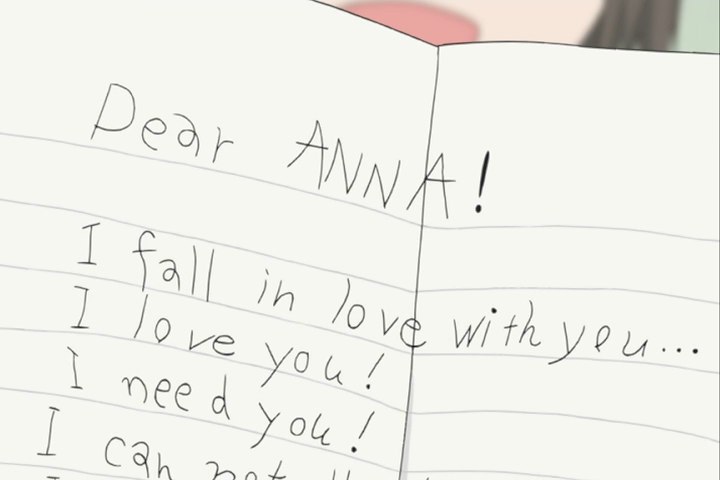 Dear ANNA!
I fall in love with you...
I love you!
I need you!
I can not